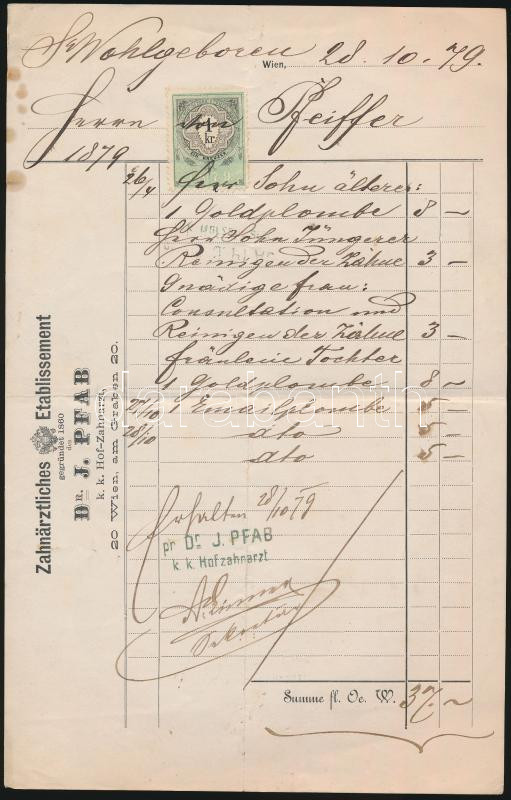 Sr Wohlgeboren
Wien, 28. 10. 79.
Herrn von Pfeiffer
1879
1
kr
26/4 Herr Sohn älterer:
1 Goldplombe 8 —
Herr Sohn Jüngerer
Reinigen der Zähne 3 —
Gnädige frau:
Consultation und
Reinigen der Zähne 3 —
fräulein Tochter
1 Goldplombe 8 —
27/10 1 Emailplombe 5 —
28/10 dto 5 —
dto 5 —
Erhalten 28/10 79
pr Dr. J. PFAB
k. k. Hofzahnarzt
Sekretär
Summe fl. Oe. W. 37. —
Zahnärztliches Etablissement
gegründet 1860
des
DR. J. PFAB
k. k. Hof-Zahnarzt,
20 Wien, am Graben 20.
darabanth